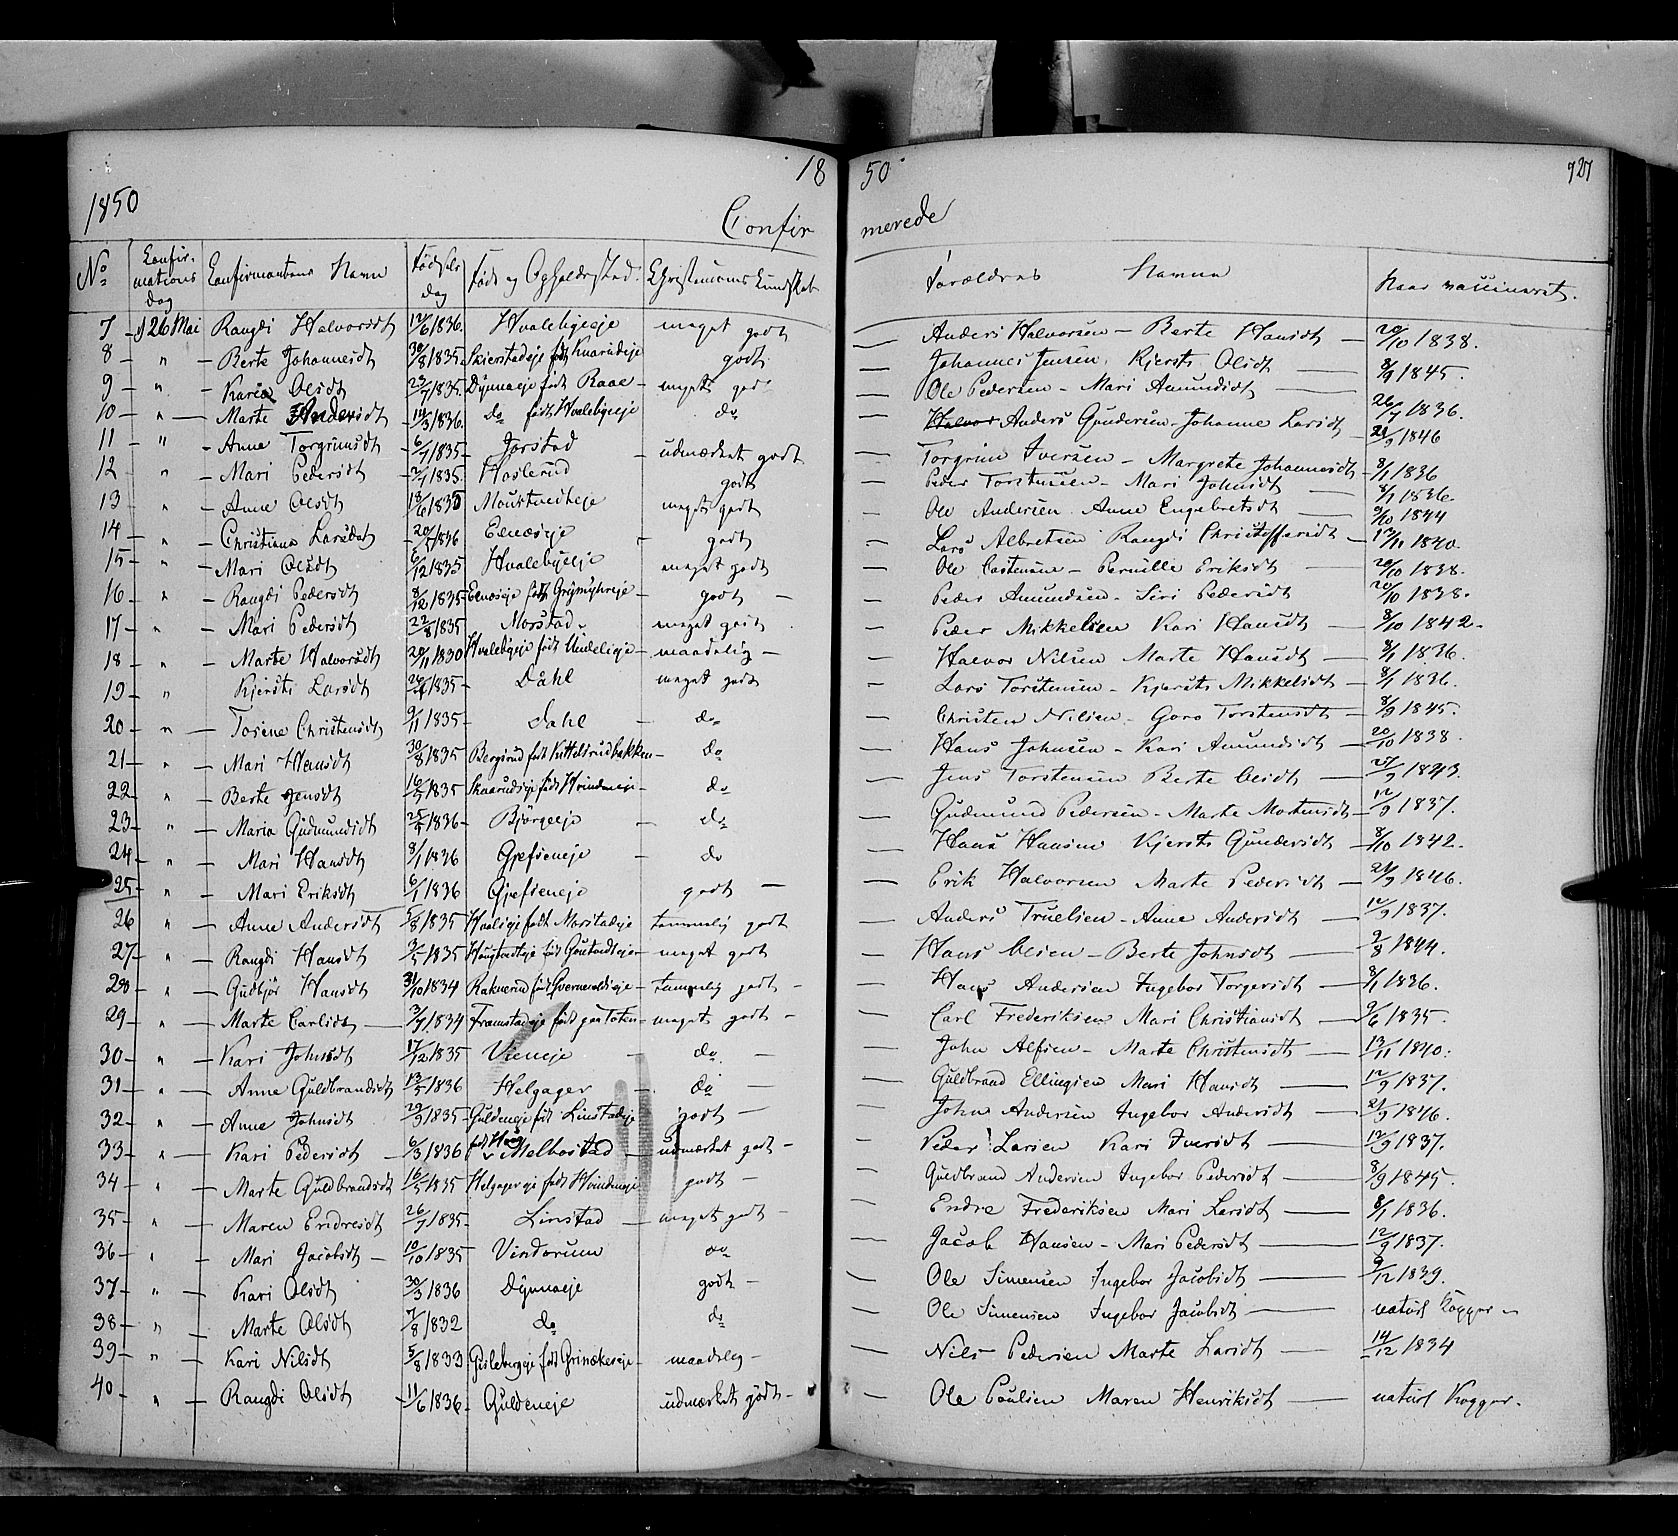 1850
18 50
727
Confir merede
No Confirmations Dag Confirmantens Navn Fødsels dag Føde og Opholdssted. Christendoms Kundskab Forældres Navne Naar vaccineret.
7 - d 26 Mai Rangdi Halvorsdt 12/6 1836. Hvalebyeeje meget godt - Anders Halvorsen - Berte Hansdt - 20/10 1838.
8 - " - Berte Johannesdt 30/8 1835. født godt - Johannes Jensen. Kjersti Olsdt - 8/9 1845.
9 - " - Karia Olsdt 1835. Dynnaeje født Raae - meget god - Ole Pedersen - Mari Amundsdt -
10 - " - Marte Andersdt 1836. do født Hvalebyeeje do - Anders Gundersen - Johanne Larsdt - 26/7 1836.
11 - " - Anne Torgrimsdt 6/7 1835 - Jorstad - udmærket godt - Torgrim Iversen - Margrete Johannesdt - 1846
12 " - Mari Pedersdt 1835. Haslerud godt - Peder Torstensen - Mari Johnsdt - 8/1 1836
13 " - Anne Olsdt 18/6 1835 meget godt - Ole Andersen. Anne Engebretsdt - 8/1 1836.
14 - " - Christiane Larsdat 1836 Eenæseje - godt - Lars Albretsen Rangdi Christoffersdt - 9/10 1844
15 - " - Mari Olsdt 5/12 1835 Hvalebyeeje meget godt - Ole Castensen - Pernille Eriksdt - 13/11 1840.
16 " - Rangdi Pedersdt 8/12 1835 - Eenæseje født - godt - Peder Amundsen - Siri Pedersdt 20/10 1838.
17 - " - Mari Pedersdt 22/8 1835 Morstad meget godt - Peder Mikkelsen Kari Hansdt - 20/10 1838.
18 - " - Marte Halvorsdt 20/11 1830 Hvalebyeje født Undelieje - maadelig - Halvor Nilsen Marte Hansdt - 8/10 1842.
19 - " Kjersti Larsdt 1835 - Dahl meget godt - Lars Torstensen - Kjersti Mikkelsdt - 8/1 1836.
20 - " - Tosine Christensdt 9/11 1835 - Dahl - do - Christen Nilsen - Goro Torstensdt - 8/1 1836.
21 - " - Mari Hansdt 30/8 1835 Bergsrud født Kittelsrudbakken - do - Hans Johnsen - Kari Amundsdt - 8/9 1845.
22 - " - Berte Jensdt 16/5 1835 Skaarudeje født Hvindeneje - do - Jens Torstensen Berte Olsdt - 20/10 1838.
23 - " - Maria Gudmundsdt 1836 - Bjørgeeje - do - Gudmund Pedersen - Marte Mortensdt - 1843.
24 - " - Mari Hansdt 8/1 1836 Gjefseneje - do - Hans Hansen Kjersti Gundersdt - 12/9 1837.
25 " - Mari Eriksdt 6/1 1836 Gjefseneje godt - Erik Halvorsen Marte Pedersdt - 8/10 1842.
26 " - Anne Andersdt 5/8 1835 født Morstadeje temmelig godt - Anders Truelsen - Anne Andersdt - 21/9 1846.
27 - " - Rangdi Hansdt 3/5 1835 født meget godt - Hans Olsen - Berte Johnsdt - 12/9 1837.
28 " - Gudbjør Hansdt 31/10 1834 Raknerud født temmelig godt - Hans Andersen Ingebor Torgersdt - 2/8 1844.
29 - " - Marte Carlsdt - 3/9 1834 Framstadeje født paa Toten - meget godt - Carl Frederiksen Mari Christiansdt - 8/1 1836.
30 - " - Kari Johnsdt 17/12 1835 Vieneje do - John Alfsen - Marte Christensdt - 9/6 1835.
31 - " - Anne Guldbrandsdt 13/5 1836 Helgager - do - Guldbrand Ellingsen Mari Hansdt - 13/11 1840.
32 - " - Anne Johnsdt 29/9 1835 - Guldeneje født Linstadeje godt - John Andersen Ingebor Andersdt - 12/9 1837.
33 - " - Kari Pedersdt - 6/3 1836 født Mellbostad - udmærket godt - Peder Larsen Kari Iversdt - 21/9 1846.
34 - " - Marte Guldbrandsdt 16/5 1835 Helgagereje født Hvindeneje godt - Guldbrand Andersen Ingebor Pedersdt - 12/9 1837.
35 - " - Maren Endresdt 26/7 1835 - Linstad - meget godt - Endre Frederiksen Mari Larsdt - 8/9 1845.
36 - " - Mari Jacobsdt - 10/10 1835 Vindorum do - Jacob Hansen - Mari Pedersdt - 8/1 1836.
37 - " - Kari Olsdt 30/3 1836 Dynnaeje godt - Ole Simensen Ingebor Jacobsdt - 12/9 1837.
38 - " - Marte Olsdt 7/8 1832 do do - Ole Simensen Ingebor Jacobsdt - 9/12 1839.
39 - " - Kari Nilsdt 5/8 1833 Gislebergeje født Grinakereje - maadelig - Nils Pedersen Marte Larsdt - naturl Kopper -
14/12 1834
40 - " - Rangdi Olsdt - 11/6 1836 - Guldeneje udmærket godt - Ole Paulsen Maren Henriksdt - naturl Kopper.